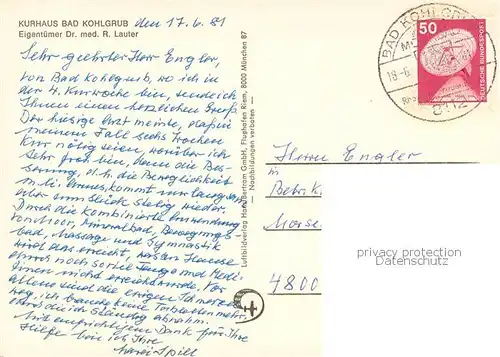 KURHAUS BAD KOHLGRUB den 17.6.81
Eigentümer Dr. med. R. Lauter
Sehr geehrter Herr Engler,
von Bad Kohlgrub, wo ich in
der 4. Kurwoche bin, sende ich
Ihnen einen herzlichen Gruß.
Der hiesige Arzt meinte, daß in
meinem Fall sechs Wochen
Kur nötig seien, worüber ich
sehr froh bin, denn die Bes-
serung, d.h. die Beweglichkeit
m. li. Armes kommt nur langsam
aber stetig wieder.
Durch die kombinierte Anwendung
von Moor, Mineralbad, Bewegungs-
bad, Massage und Gymnastik
wird das erreicht, was zu Hause
durch noch so viele und Medi-
zinen nicht erreicht wurde. Vor
allem sind die ewigen
weg, ich brauche keine mehr,
ständig abnahm.
Mit aufrichtigem Dank für Ihre
Hilfe bin ich Ihre
Luftbildverlag Hans Bertram GmbH, Flughafen Riem, 8000 München 87
— Nachbildungen verboten —
BAD KOHLGRUB
18.-6.
8112
50
DEUTSCHE BUNDESPOST
Herrn Engler
in
Betr. K.
Morse
4800
privacy protection
Datenschutz